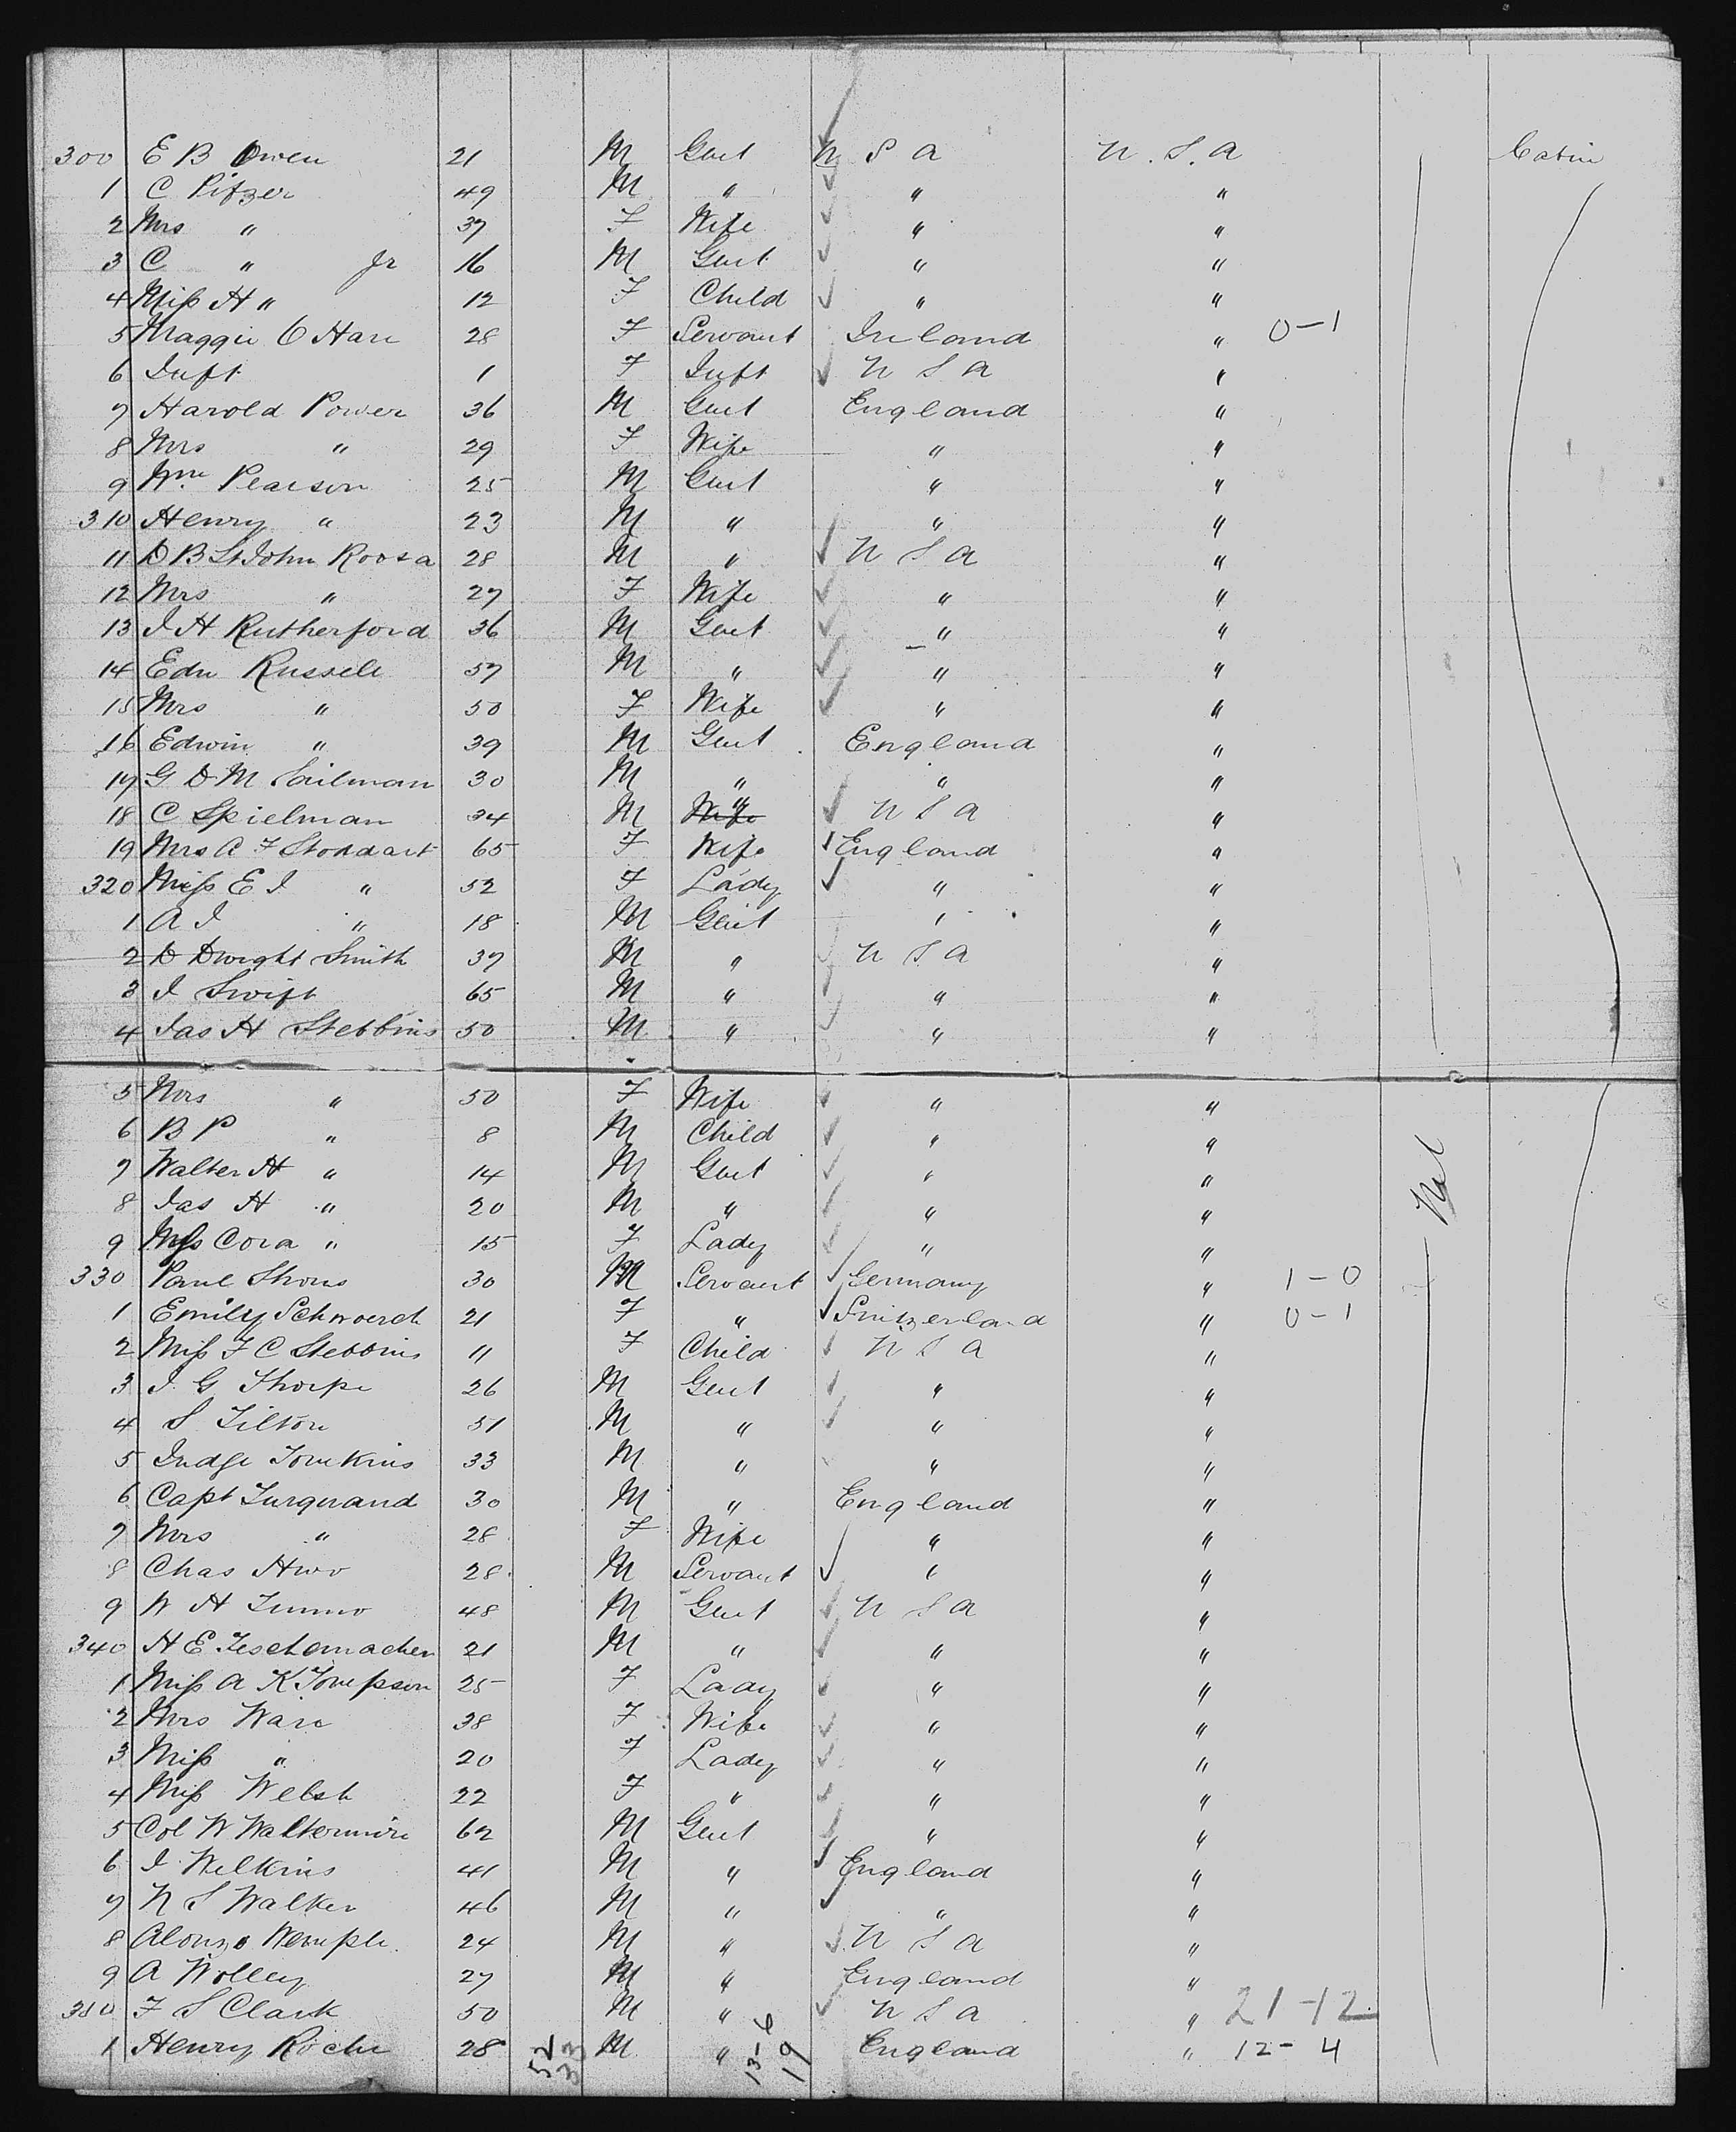 300 E B Owen 21 M Gent U S A U.S.A Cabin
1 C Pitzer 49 M " " "
2 Mrs " 37 F Wife " "
3 C " Jr 16 M Gent " "
4 Miss H " 12 F Child " "
5 Maggie O Hare 28 F Servant Ireland " 0-1
6 Inft 1 F Inft U S A "
7 Harold Power 36 M Gent England "
8 Mrs " 29 F Wife " "
9 Wm Pearson 25 M Gent " "
310 Henry " 23 M " " "
11 D B St John Roosa 28 M " U S A "
12 Mrs " 27 F Wife " "
13 J H Rutherford 36 M Gent " "
14 Edw Russell 57 M " " "
15 Mrs " 50 F Wife " "
16 Edwin " 39 M Gent England "
17 G D M 30 M " " "
18 C Spielman 34 M " U S A "
19 Mrs A F Stoddart 65 F Wife England "
320 Miss E J " 52 F Lady " "
1 A J " 18 M Gent " "
2 D Dwight Smith 37 M " U S A "
3 J Swift 65 M " " "
4 Jas H Stebbins 50 M " " "
5 Mrs " 50 F Wife " "
6 B P " 8 M Child " "
7 Walter H " 14 M Gent " "
8 Jas H " 20 M " " "
9 Miss Cora " 15 F Lady " "
330 Paul 30 M Servant Germany " 1-0
1 Emily 21 F " Switzerland " 0-1
2 Miss F C Stebbins 11 F Child U S A "
3 J. G Thorpe 26 M Gent " "
4 S Tilton 51 M " " "
5 Judge Tomkins 33 M " " "
6 Capt Turquand 30 M " England "
7 Mrs " 28 F Wife " "
8 Chas 28 M Servant " "
9 W H 48 M Gent U S A "
340 H E Teschemacher 21 M " " "
1 Miss A K Tompson 25 F Lady " "
2 Mrs Ware 38 F Wife " "
3 Miss " 20 F Lady " "
4 Miss Welsh 22 F " " "
5 Col W Waltermire 62 M Gent " "
6 J Wilkins 41 M " England "
7 N S Walker 46 M " " "
8 Alonzo Wemple 24 M " U S A "
9 A Wolley 27 M " England "
350 F S Clark 50 M " U S A " 21-12
1 Henry Roche 28 M " England " 12-4
52
33
13-6
19